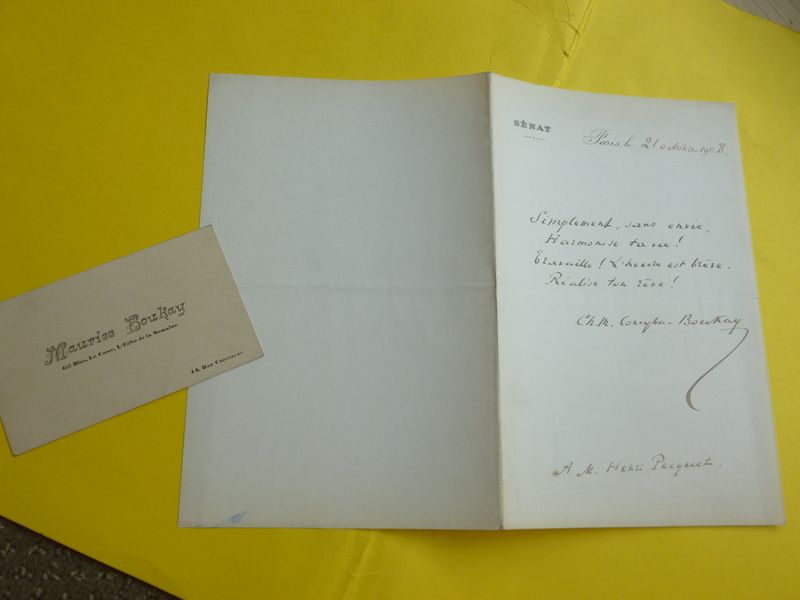 Maurice Boukay
Gil Blas, Le Cœur, L'Echo de la Semaine
14, Rue
SÉNAT
Paris le 21 octobre 1908.
Simplement, sans envie,
Harmonise ta vie!
Travaille! L'heure est brève.
Réalise ton rêve!
Ch. M. Couyba-Boukay
A M. Henri